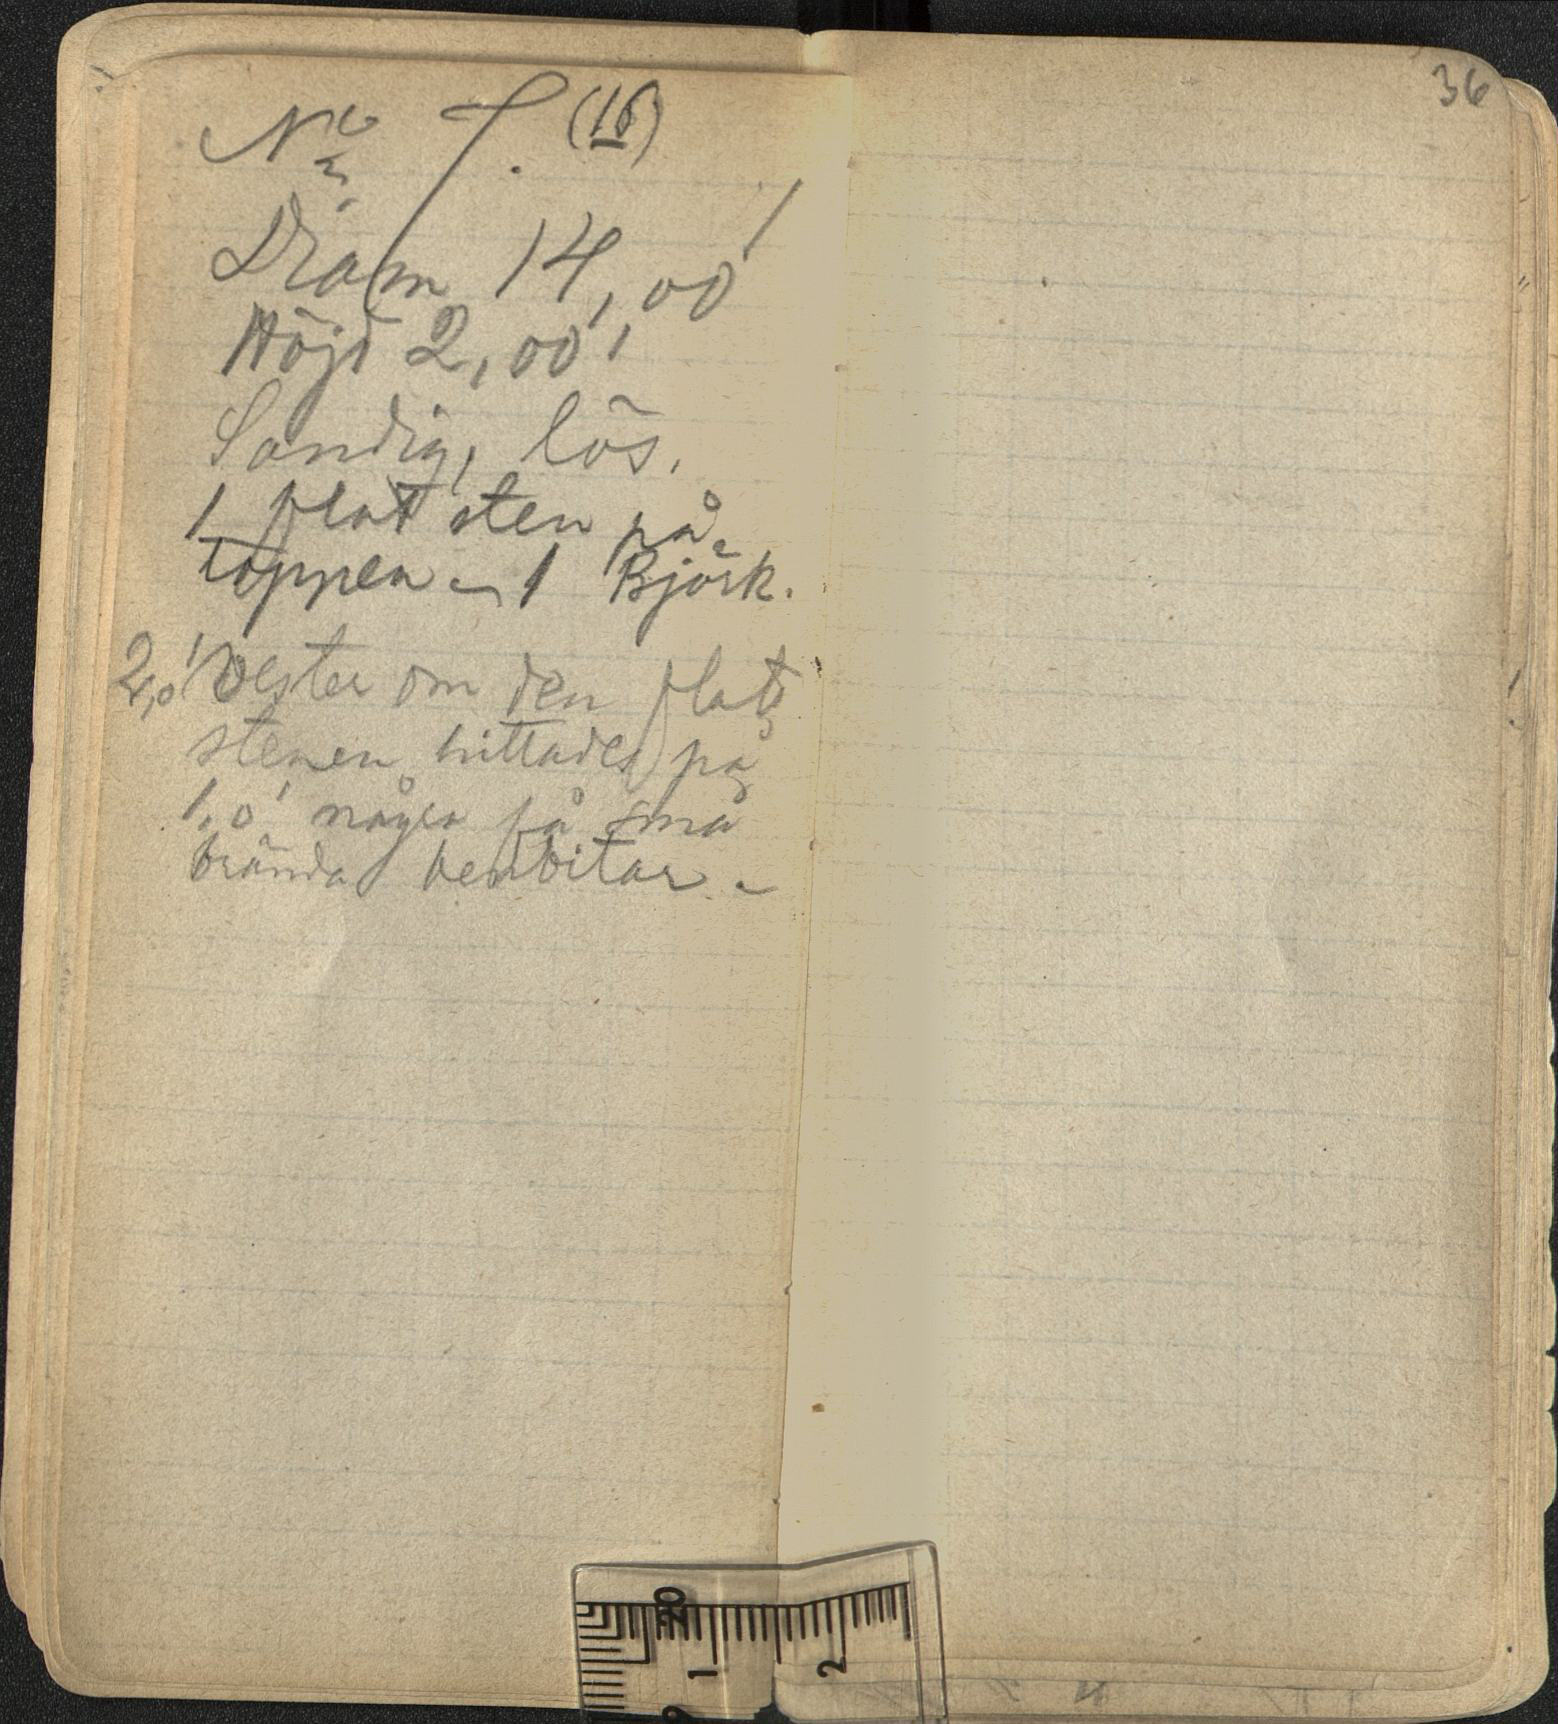 No 7. (16)
Diam 14,00'
Höjd 2,00'.
Sandig, lös.
1 flat sten på
toppen - 1 Björk.
2,0' vester om den flata
stenen hittades på
1,0' några få små
brända benbitar -
36